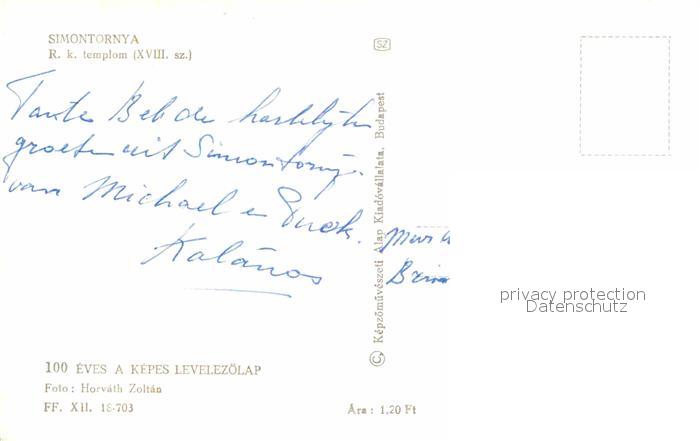 SIMONTORNYA
R. k. templom (XVIII. sz.)
SZ
Tante Beb de hartelijke
groeten uit Simontornya
van Michael en
Kalános
Képzőművészeti Alap Kiadóvállalata, Budapest
privacy protection
Datenschutz
100 ÉVES A KÉPES LEVELEZŐLAP
Foto: Horváth Zoltán
FF. XII. 18-703
Ára: 1,20 Ft